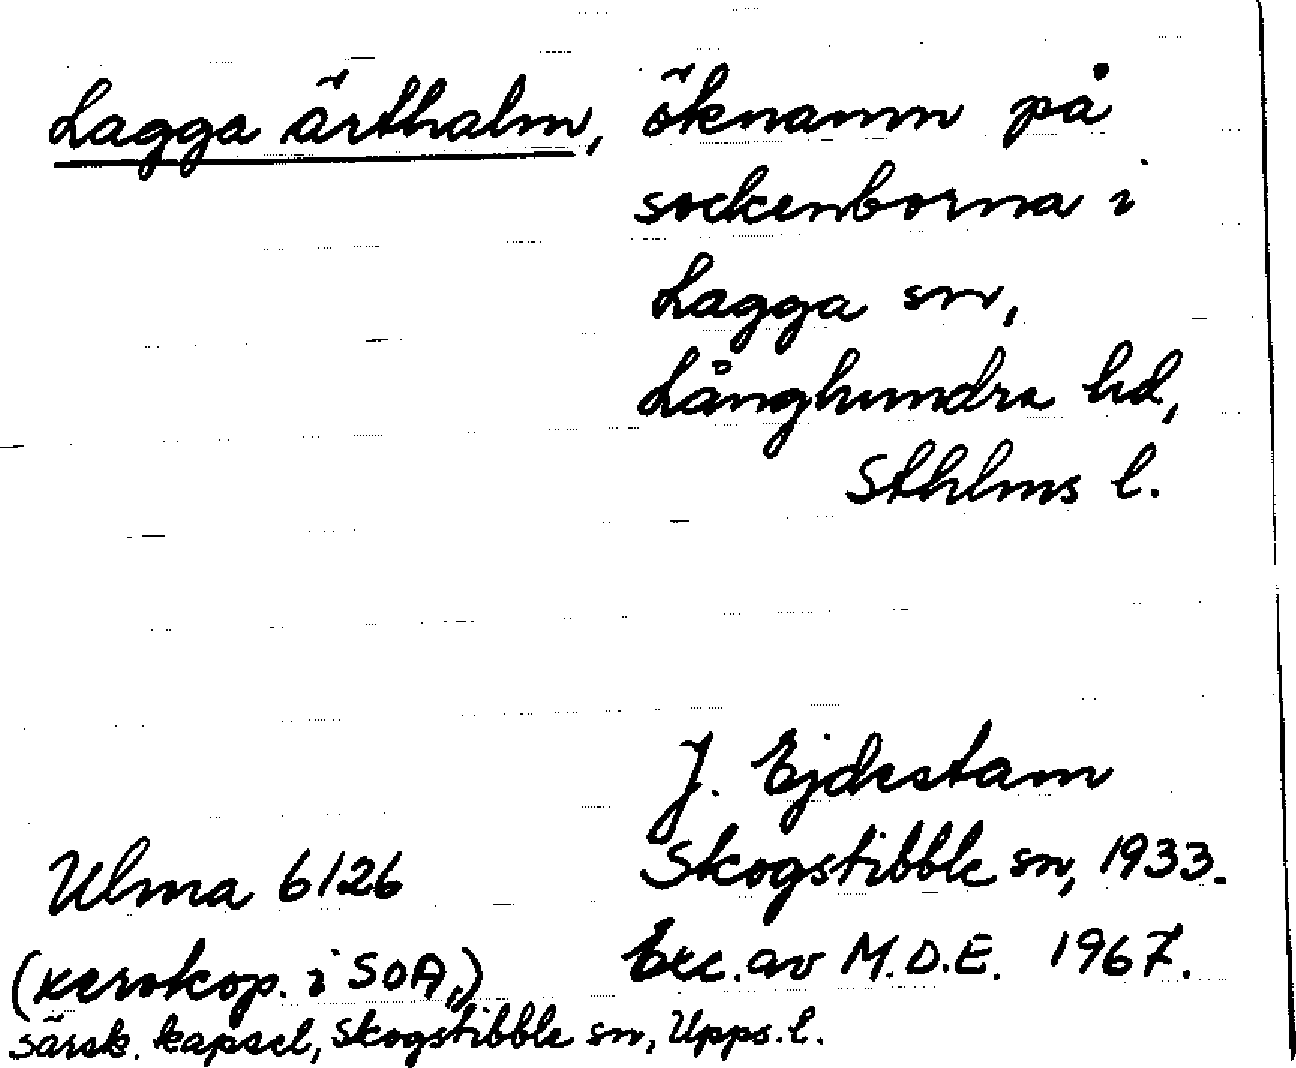 Lagga ärthalm, öknamn på
sockenborna i
Lagga sn,
Långhundra hd,
Sthlms l.
J. Ejdestam
Ulma 6126 Skogstibble sn, 1933.
(xerokop. i SOA,) Exc. av M.D.E. 1967.
särsk. kapsel, Skogstibble sn, Upps. l.